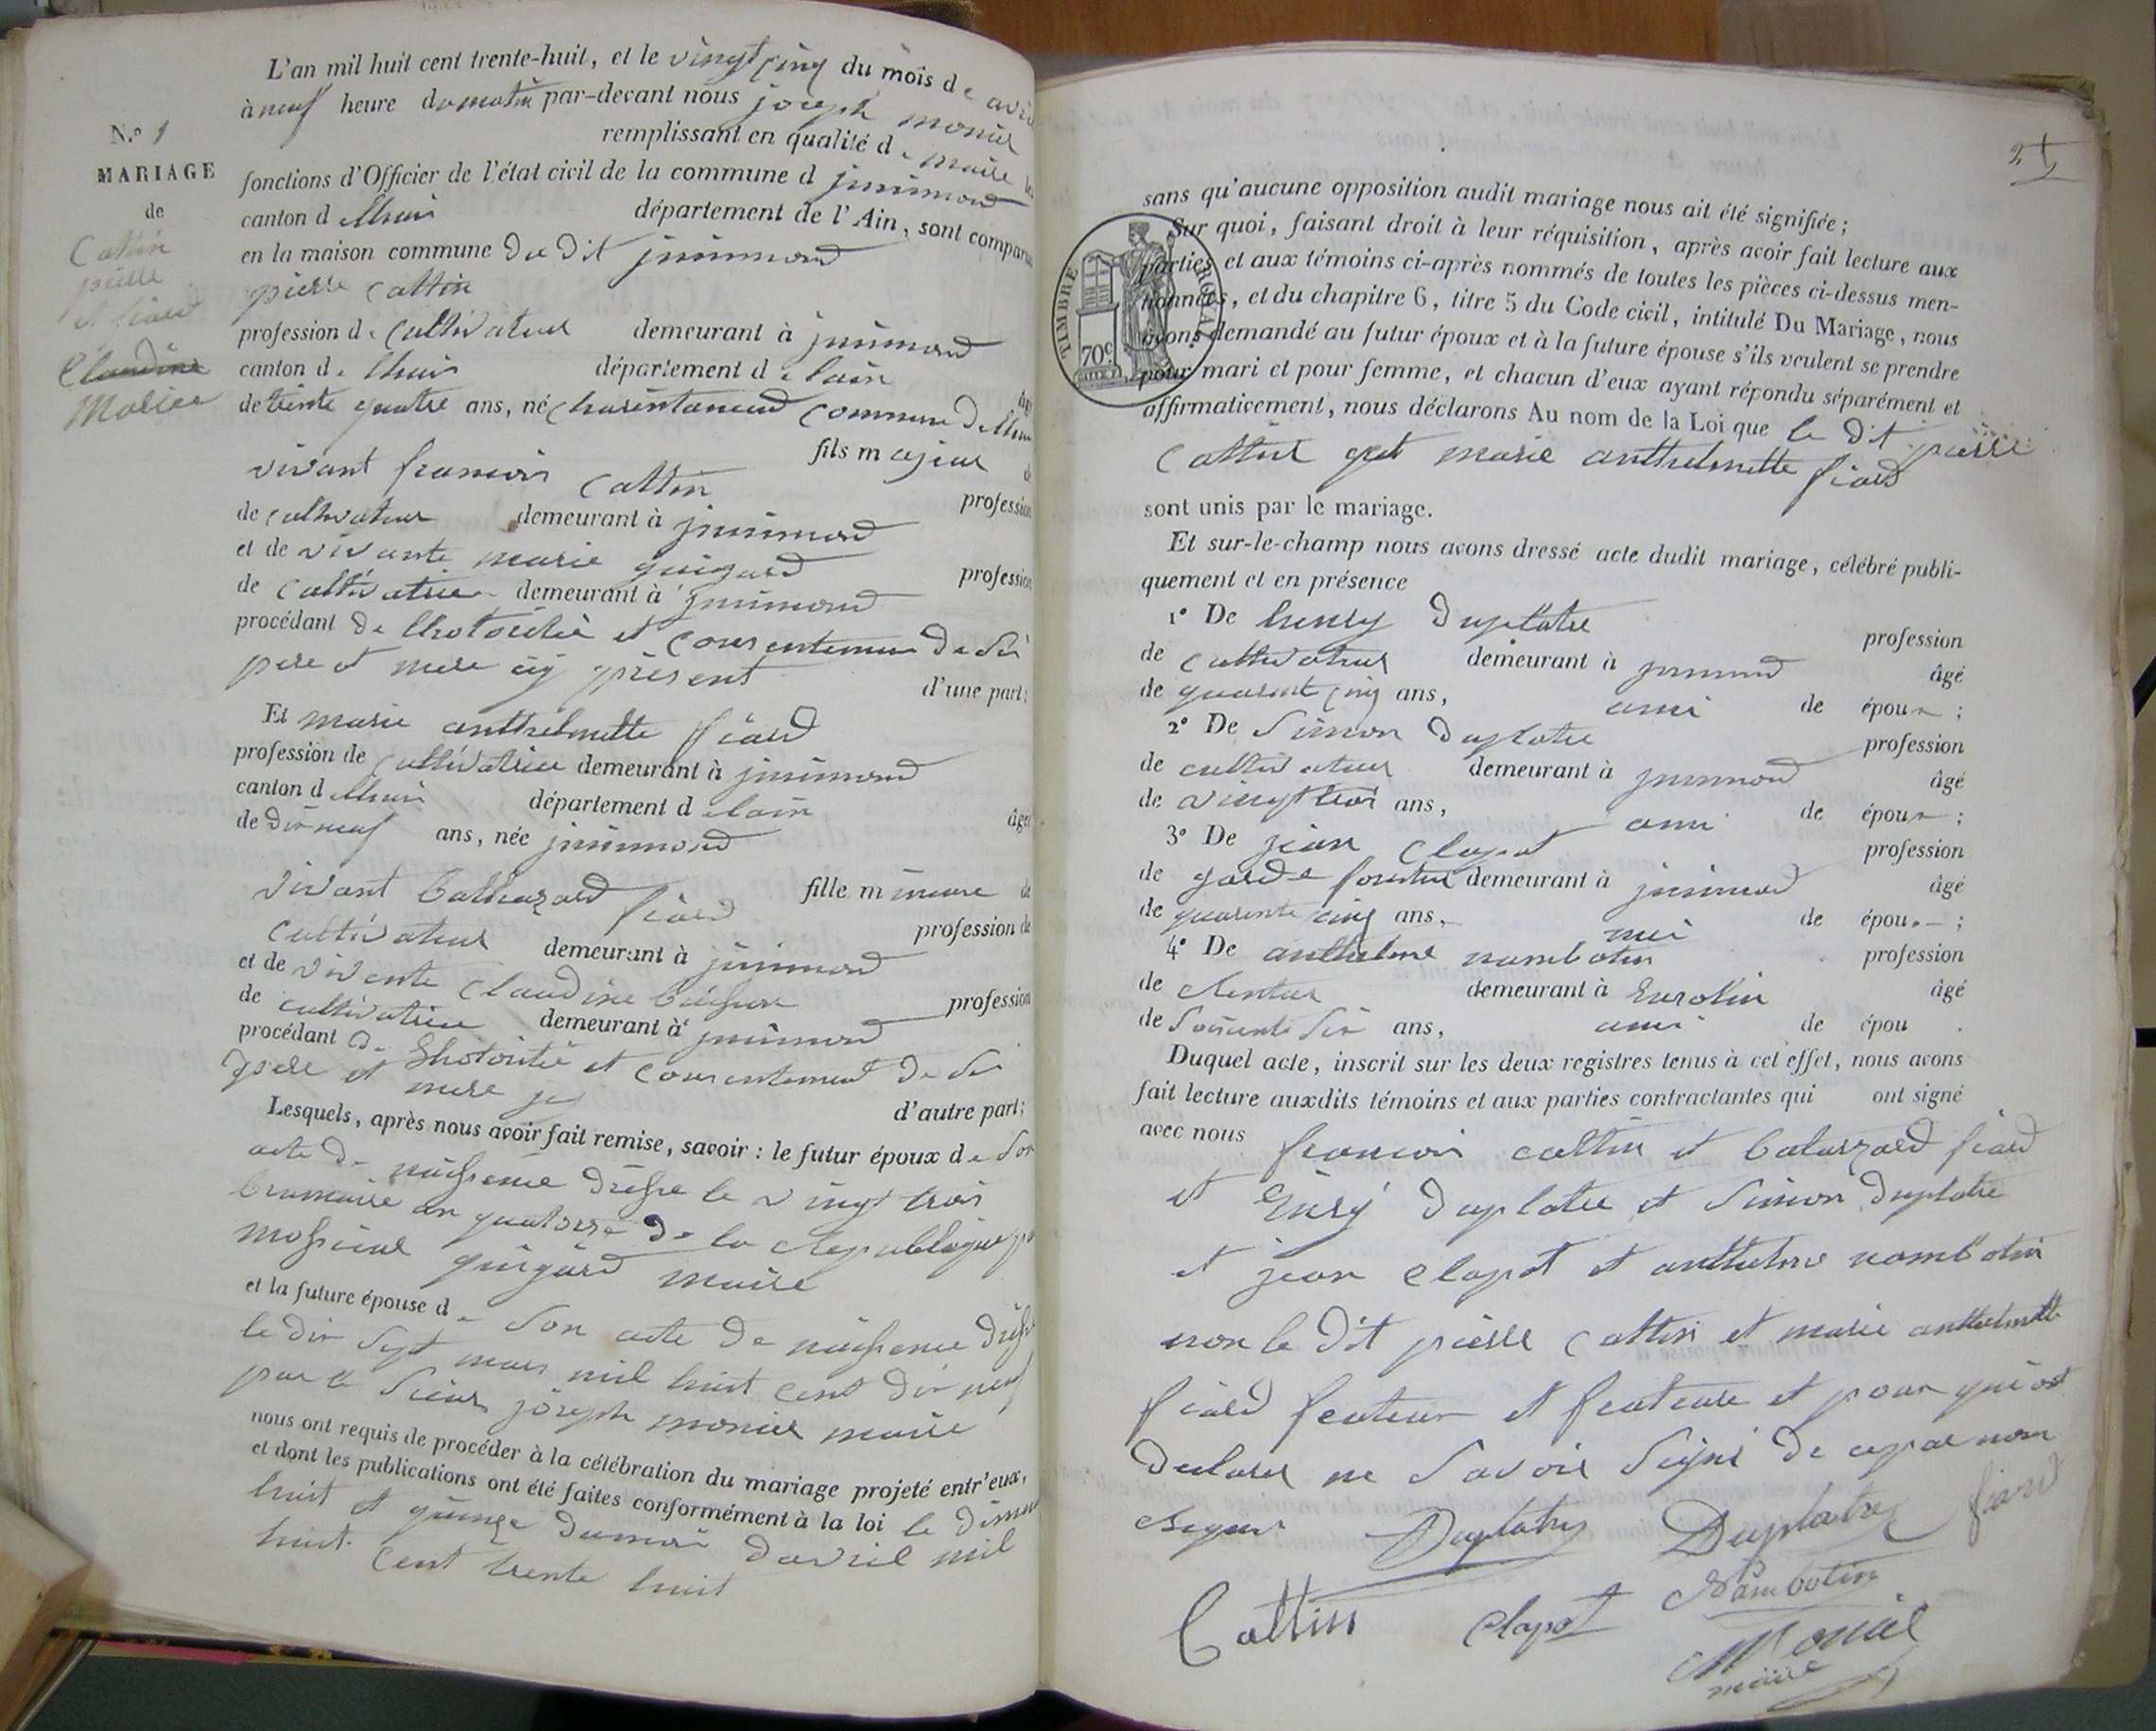 L'an mil huit cent trente-huit, et le vingt cinq du mois de avri
à neuf heure du matin par-devant nous joseph monier
remplissant en qualité de maire les
N.° 1
MARIAGE
de
Cattin
pierre
et fiard
Claudine
Marie
fonctions d'Officier de l'état civil de la commune d jnnimond
canton d lhuis département de l'Ain, sont comparus
en la maison commune du dit jnnimond
pierre cattin
profession de cultivateur demeurant à jnnimond
canton de lhuis département de lain
de trente quatre ans, né commune de lhuis
fils majeur de
vivant francois cattin profession
de cultivateur demeurant à jnnimond
et de vivante marie guigard profession
de cultivatrice demeurant à jnnimond
procédant de lhotoritée et consentement de sis
pere et mere ciy présent d'une part;
Et marie anthelmette fiard
profession de cultivatrice demeurant à jnnimond
canton d lhuis département de lain âgée
de dix neuf ans, née jnnimond
fille mineure de
vivant balthazard fiard profession de
cultivateur demeurant à jnnimond
et de vivente claudine profession
de cultivatrice demeurant à jnnimond
procédant de lhotoritée et consentement de sis
pere et mere d'autre part;
Lesquels, après nous avoir fait remise, savoir : le futur époux de son
acte de naissence dresse le vingt trois
brumaire an quatorse de la republique p
monsieur guigard maire
et la future épouse de son acte de naissence dress
le dix sept mars mil huit cent dix neuf
par le sieur joseph monier maire
nous ont requis de procéder à la célébration du mariage projeté entr'eux,
et dont les publications ont été faites conformément à la loi le diman
huit et quinze du moi davril mil
huit cent trente huit
sans qu'aucune opposition audit mariage nous ait été signifiée;
Sur quoi, faisant droit à leur réquisition, après avoir fait lecture aux
parties et aux témoins ci-après nommés de toutes les pièces ci-dessus men-
tionnées, et du chapitre 6, titre 5 du Code civil, intitulé Du Mariage, nous
avons demandé au futur époux et à la future épouse s'ils veulent se prendre
pour mari et pour femme, et chacun d'eux ayant répondu séparément et
affirmativement, nous déclarons Au nom de la Loi que le dit pierre
cattin et marie anthelmette fiard
TIMBRE ROYAL
70c
sont unis par le mariage.
Et sur-le-champ nous avons dressé acte dudit mariage, célébré publi-
quement et en présence
1° De henry Duplatre profession
de cultivateur demeurant à jnnimond âgé
de quarent cinq ans, ami de époux ;
2° De Simon Duplatre profession
de cultivateur demeurant à jnnimond âgé
de vingt troi ans, ami de époux ;
3° De jean clapot profession
de garde forestier demeurant à jnnimond âgé
de quarente cinq ans, ami de époux ;
4° De anthelme nambotin profession
de Rentier demeurant à âgé
de soisente six ans, ami de épou
Duquel acte, inscrit sur les deux registres tenus à cet effet, nous avons
fait lecture auxdits témoins et aux parties contractantes qui ont signé
avec nous francois cattin et batarzard fiard
et henry Duplatre et Simon Duplatre
et jean clapot et anthelme nambotin
non le dit pierre cattin et marie anthelmette
fiard feuteur et feuteuse et pour qui ont
declarer ne savoir signé de ce par nom
requi Duplatre Duplatre fiard
Cattin clapot Nambotin
Monier
maire